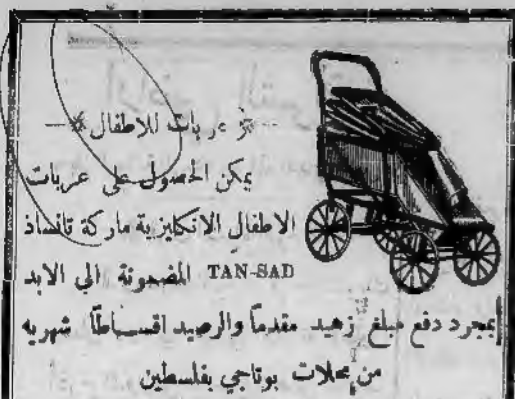 عربات للاطفال
يمكن الحصول على عربات
الاطفال الانكليزية ماركة تانساد
TAN-SAD المضمونة الى الابد
بمجرد دفع مبلغ زهيد مقدماً والرصيد اقسـاطاً شهريه
من محلات بوتاجي بفلسطين